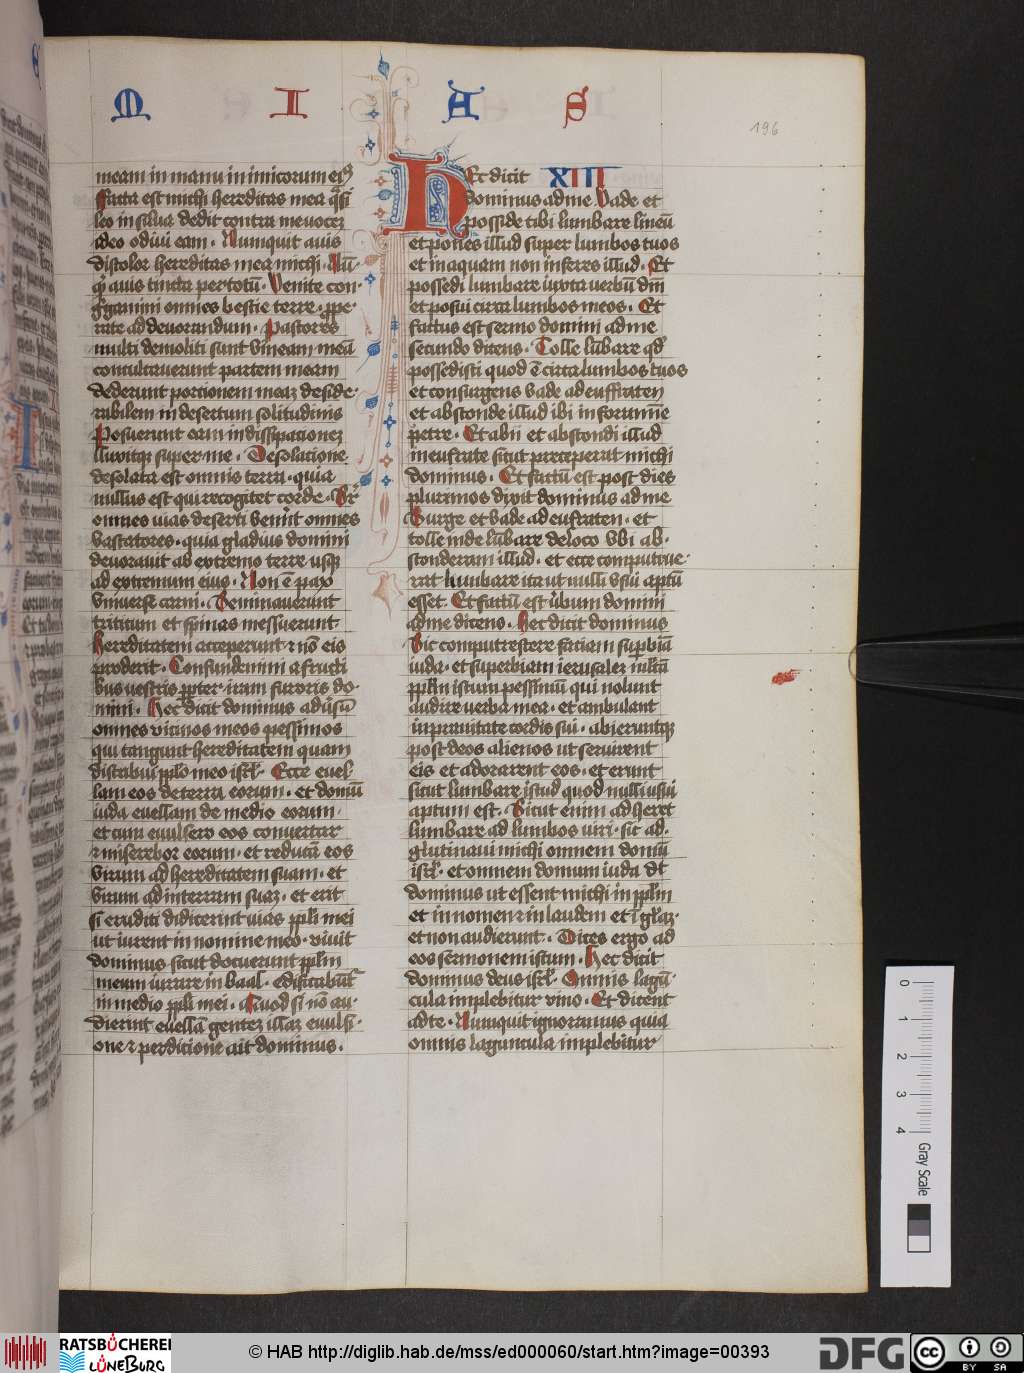 M I A S
196
meam in manu inimicorum eiꝰ
ffacta est michi hereditas mea qͣsi
leo in silua dedit contra me vocez
ideo odiui eam · Numquit auis
discolor hereditas mea michi · Nū·
qͥd auis tincta per totū · Venite con·
gͥgamini omnes bestie terre · ꝓpe·
rate ad deuorandum · Pastores
multi demoliti sunt vineam meā
conculcauerunt partem meam
dederunt portionem meaz deside·
rabilem in desertum solitudinis
Posuerunt eam in dissipacionez
luxitqz super me · Desolacione
desolata est omnis terra · quia
nullus est qui recogitet corde · Sr̄
omnes uias deserti venͬut omnes
vastatores · quia gladius domini
deuorauit ab extremo terre usqz
ad extremum eius · Non ē pax
vniuerse carni · Seminauerunt
triticum et spinas messuerunt
hereditatem acceperunt ⁊ nō eis
proderit · Confundemini a fructi
bus uestris ꝓpter iram furoris do·
mini · Hec dicit dominus aduͥsū
omnes vicinos meos pessimos
qui tangunt hereditatem quam
distribui pplo meo isrl · Ecce euel·
lam eos de terra eorum · et domū
iuda euellam de medio eorum
et cum euulsero eos conuertar
⁊ miserebor eorum · et reducā eos
virum ad hereditatem suam · et
virum ad in terram suaz · et erit
si eruditi didicerint uias ppli mei
ut iurent in nomine meo · viuit
dominus sicut docuerunt pplm
meum iurare in baal · Edificabūtͬ
in medio ppli mei · Quod si nō au·
dierint euellā gentez illaz euulsi·
one ⁊ perditione ait dominus ·
XIII
Hec dicit
dominus ad me Vade et
posside tibi lumbare lineū
et pones illud super lumbos tuos
et in aquam non inferes illud · Et
possedi lumbare iuxta verbū dm̄
et posui circa lumbos meos · Et
factus est sermo domini ad me
secundo dicens · Tolle lūbare qd
possedisti quod ē circa lumbos tuos
et consurgens vade ad euffraten
et absconde illud ibi in foramine
petre · Et abii et abscondi illud
in eufrate sicut preceperat michi
dominus · Et factū est post dies
plurimos dixit dominus ad me
Surge et vade ad eufraten · et
tolle inde lūbare de loco vbi ab·
sconderam illud · et ecce computrue·
rat lumbare ita ut nulli vsui aptū
esset · Et factū est uͥbum domini
ad me dicens · Hec dicit dominus
Sic computrescere faciam supͥbiā
iuda · et superbiam ierusalez mltā
pplm istum pessimū qui nolunt
audire uerba mea · et ambulant
in prauitate cordis sui · abieruntqz
post deos alienos ut seruirent
eis et adorarent eos · et erunt
sicut lumbare istud quod nulli usui
aptum est · Sicut enim adheret
lumbare ad lumbos uiri · sic ad·
glutinaui michi omnem domū
isrl · et omnem domum iuda dt
dominus ut essent michi in pplm
et in nomen ⁊ in laudem et ī glaz·
et non audierunt · Dices ergo ad
eos sermonem istum · Hec dicit
dominus deus isrl · Omnis lagū·
cula implebitur vino · Et dicent
ad te · Numquit ignoramus quia
omnis laguncula implebitur
0 1 2 3 4 Gray Scale
RATSBÜCHEREI
LÜNEBURG
© HAB http://diglib.hab.de/mss/ed000060/start.htm?image=00393
DFG
cc BY SA